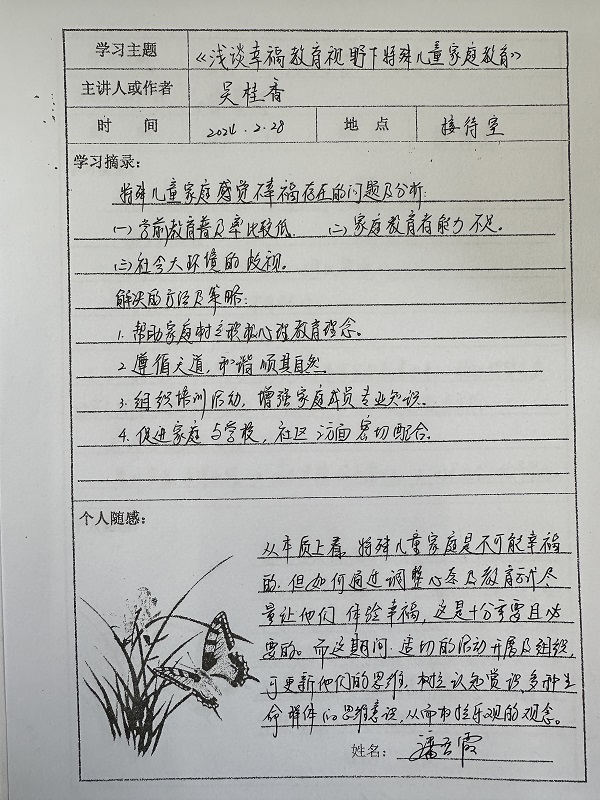 学习主题 《浅谈幸福教育视野下特殊儿童家庭教育》
主讲人或作者 吴桂香
时间 2024.2.28 地点 接待室
学习摘录：
特殊儿童家庭感觉不幸福存在的问题及分析.
(一)学前教育普及率比较低. (二)家庭教育者能力不足。
(三)社会大环境的歧视。
解决的方法及策略:
1. 帮助家庭树立积极心理教育理念。
2. 遵循天道,和谐顺其自然.
3. 组织培训活动,增强家庭成员专业知识.
4. 促进家庭与学校,社区方面密切配合。
个人随感：
从本质上看,特殊儿童家庭是不可能幸福
的.但如何通过调整心态及教育方式尽
量让他们体验幸福,这是十分重要且必
要的。而这期间.适切的活动开展及组织,
可更新他们的思维,树立认知赏识多种生
命群体的思维意识,从而树立乐观的观念。
姓名：潘 霞